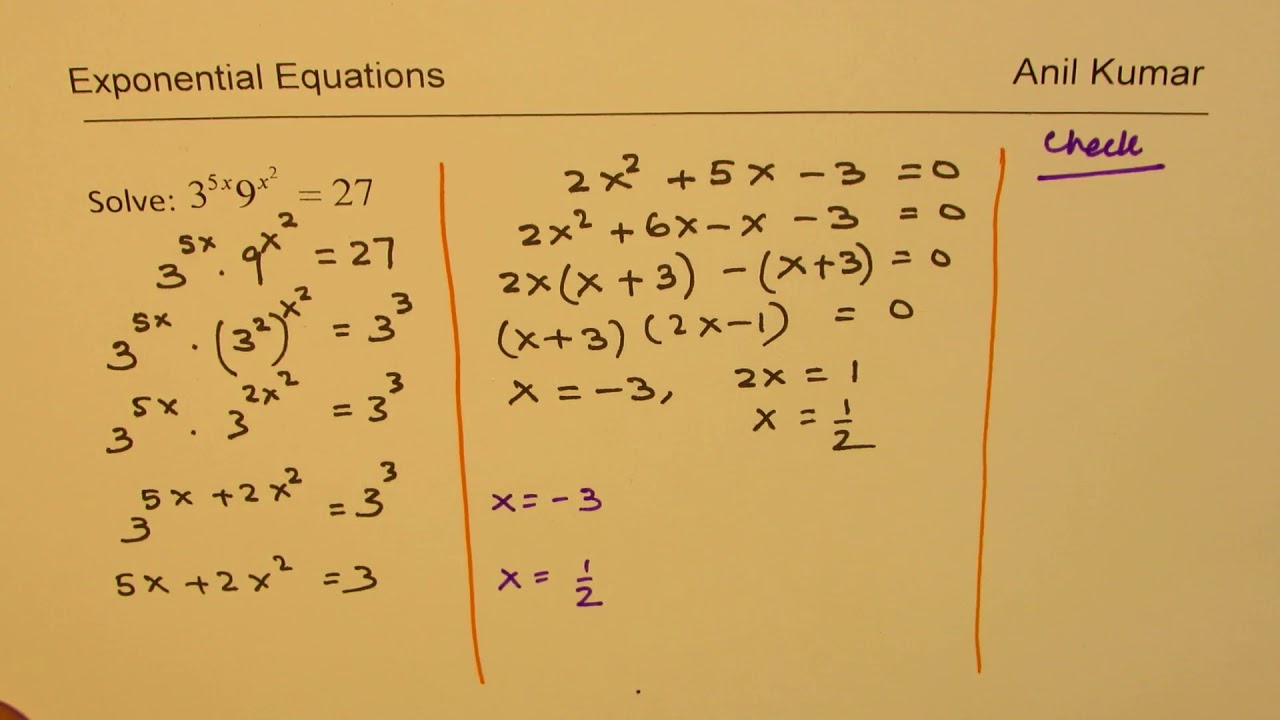 Exponential Equations
Anil Kumar
Solve: 3^{5x}9^{x^2} = 27
3^{5x} · 9^{x^2} = 27
3^{5x} · (3^2)^{x^2} = 3^3
3^{5x} · 3^{2x^2} = 3^3
3^{5x + 2x^2} = 3^3
5x + 2x^2 = 3
2x^2 + 5x - 3 = 0
2x^2 + 6x - x - 3 = 0
2x(x + 3) - (x+3) = 0
(x+3) (2x-1) = 0
x = -3, 2x = 1
x = 1/2
x = -3
x = 1/2
Check